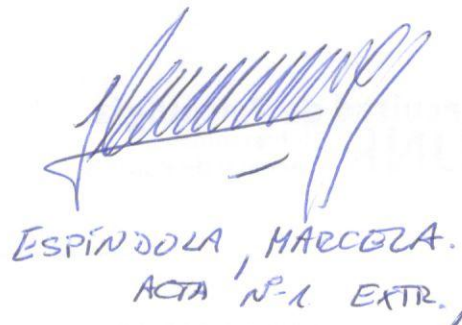 ESPÍNDOLA, MARCELA.
ACTA Nº 1 EXTR.